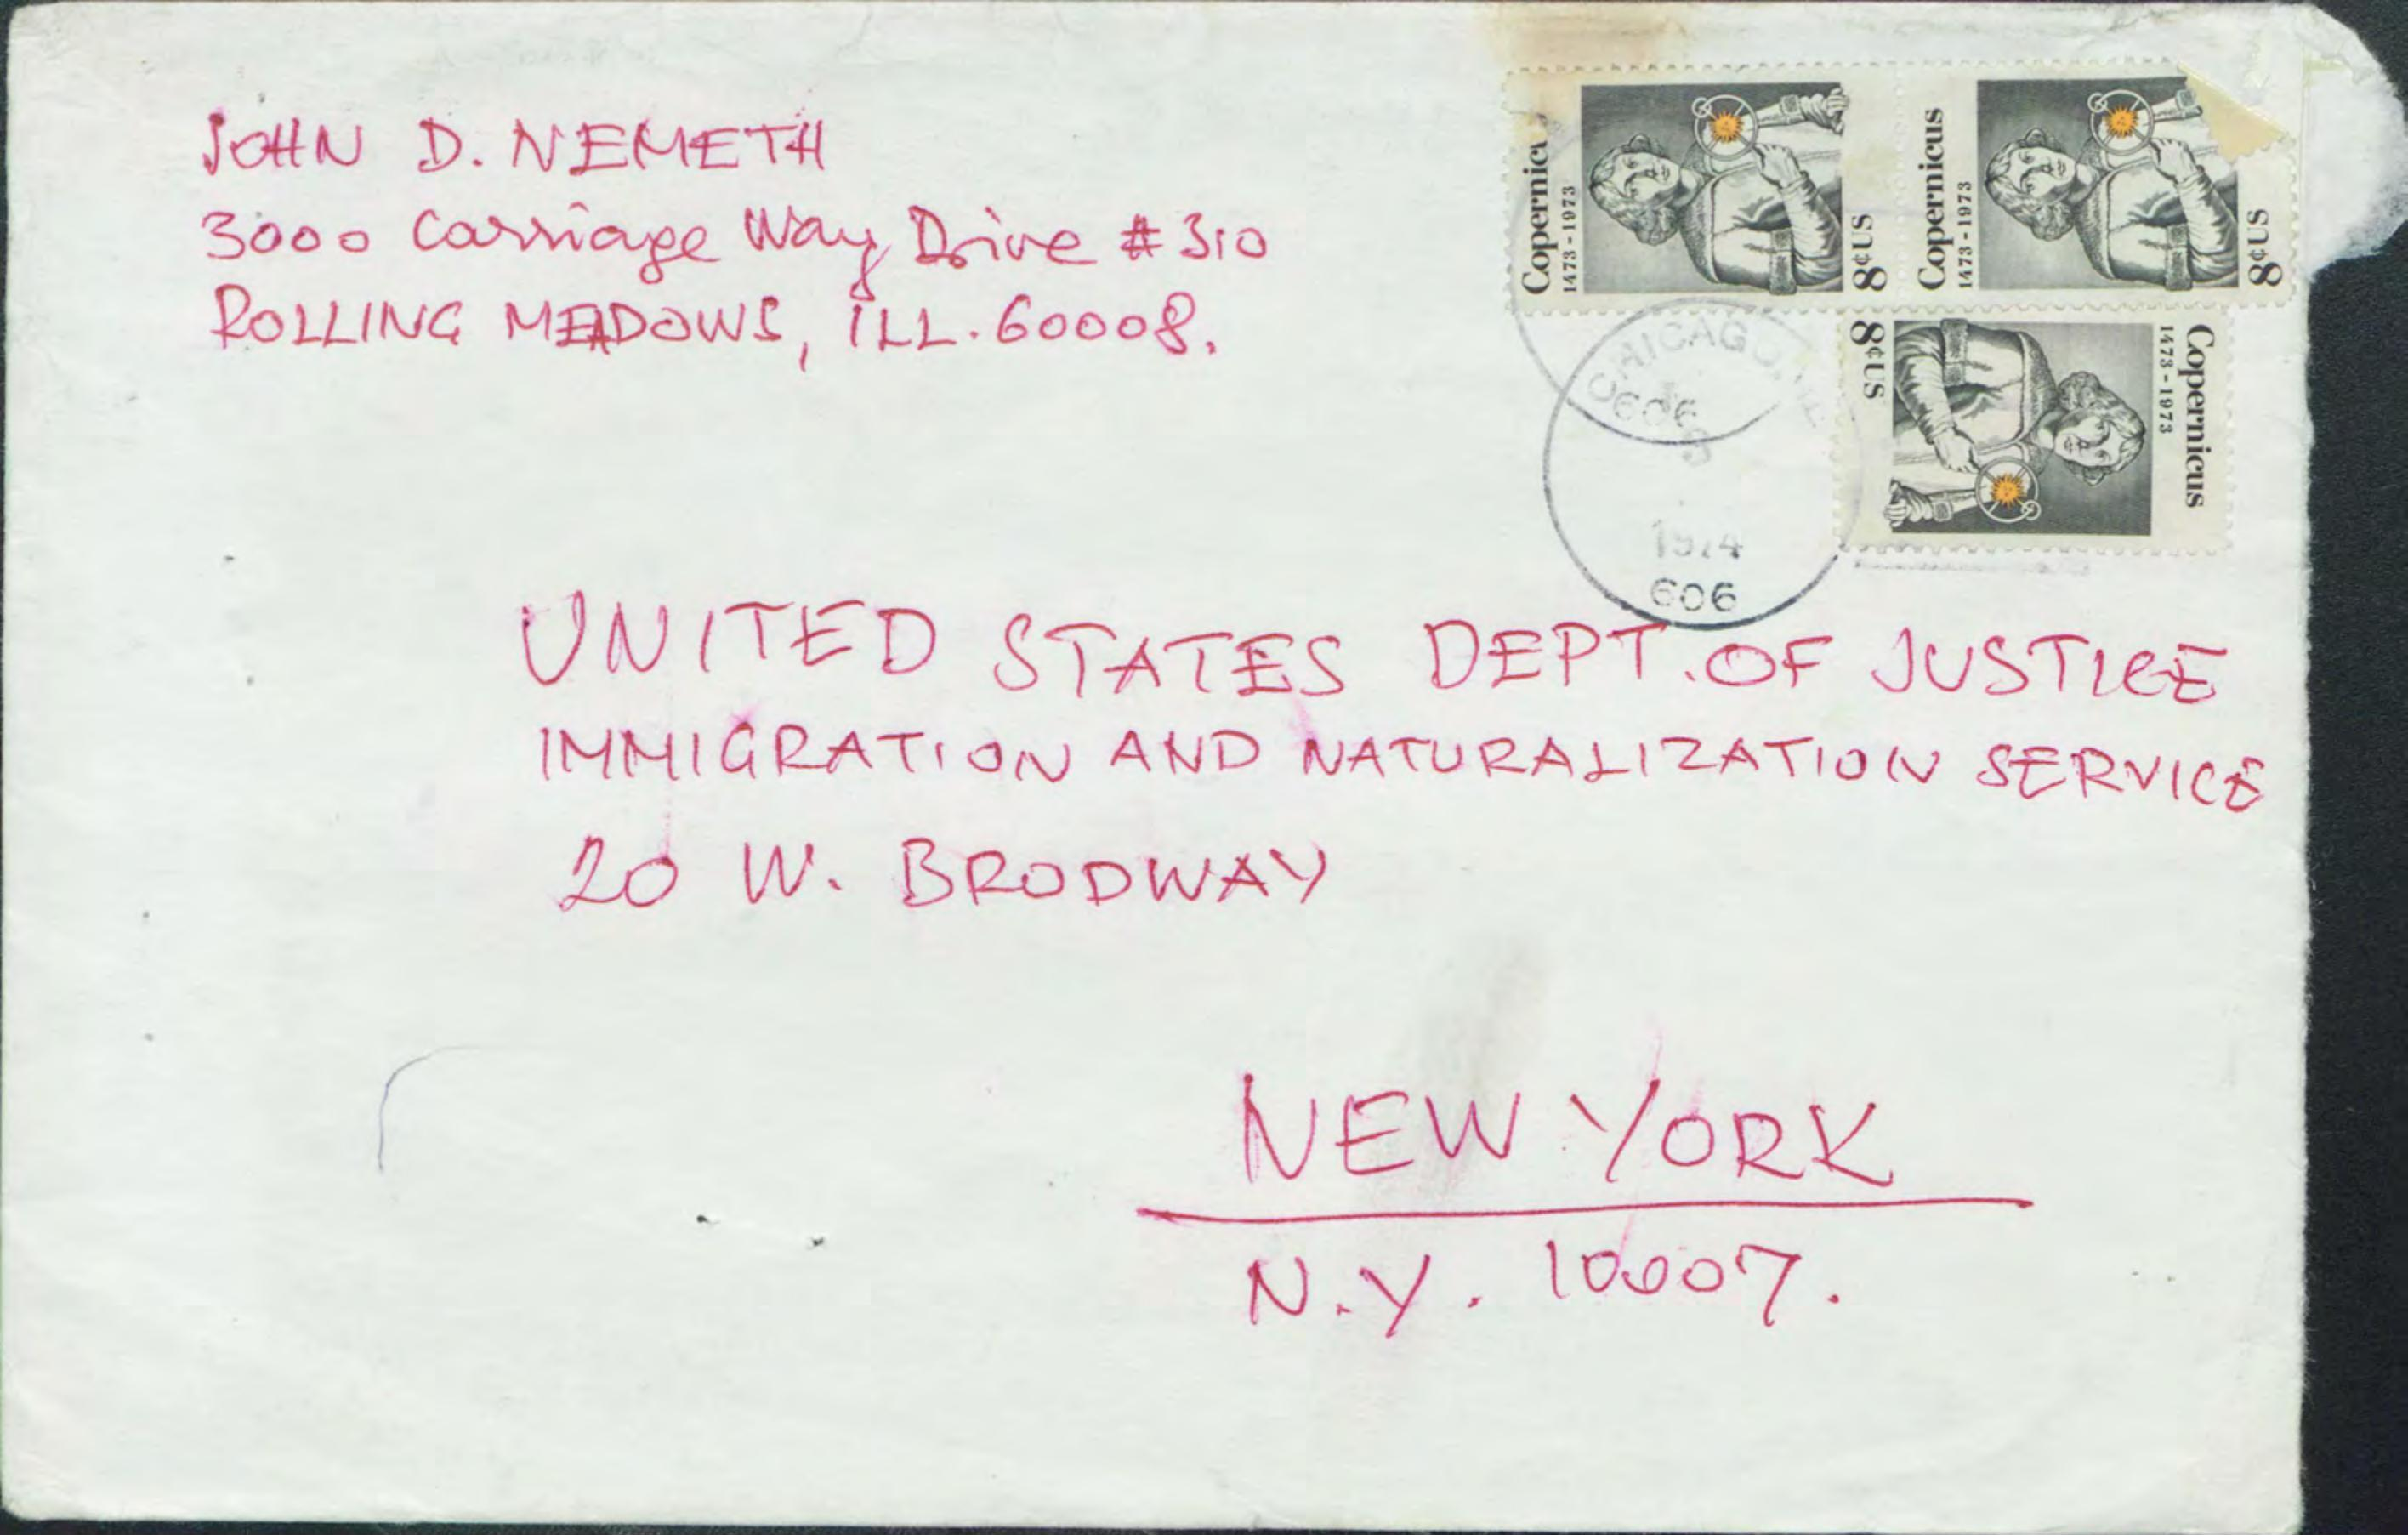 JOHN D. NEMETH
3000 Carriage Way Drive # 310
ROLLING MEADOWS, ILL. 60008.
Copernicus
1473-1973
8¢US
Copernicus
1473-1973
8¢US
Copernicus
1473-1973
8¢US
CHICAGO,
606
1974
606
UNITED STATES DEPT. OF JUSTICE
IMMIGRATION AND NATURALIZATION SERVICE
20 W. BRODWAY
NEW YORK
N.Y. 10007.